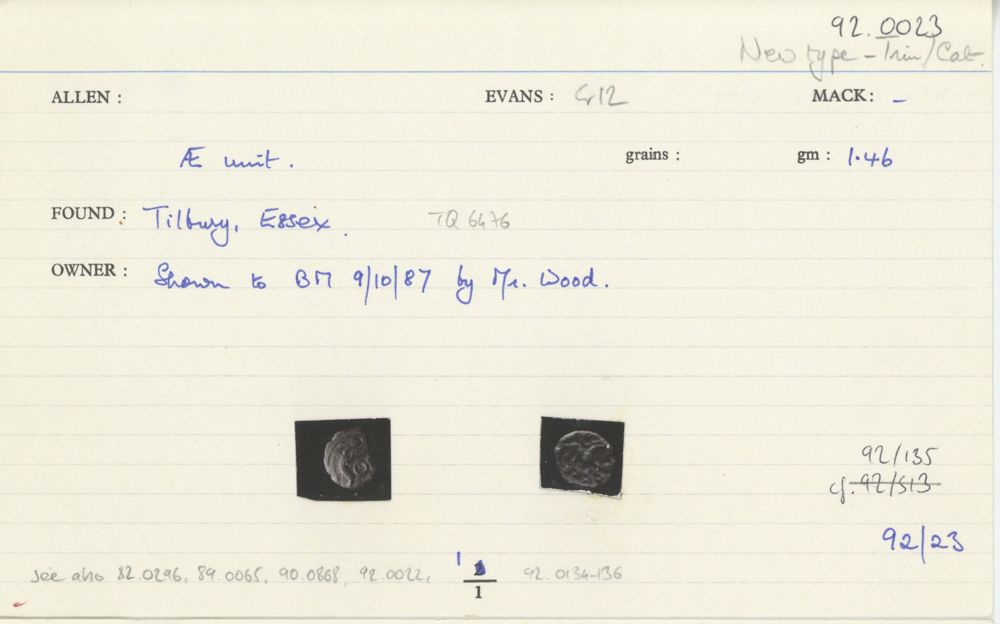 92.0023
New type - Trin/Cat.
ALLEN : EVANS : G12 MACK: -
Æ unit. grains : gm : 1.46
FOUND : Tilbury, Essex. TQ 6476
OWNER : Shown to BM 9/10/87 by Mr. Wood.
92/135
cf. 92/513
92/23
see also 82.0296, 89.0065, 90.0868, 92.0022, 92.0134-136
1
1